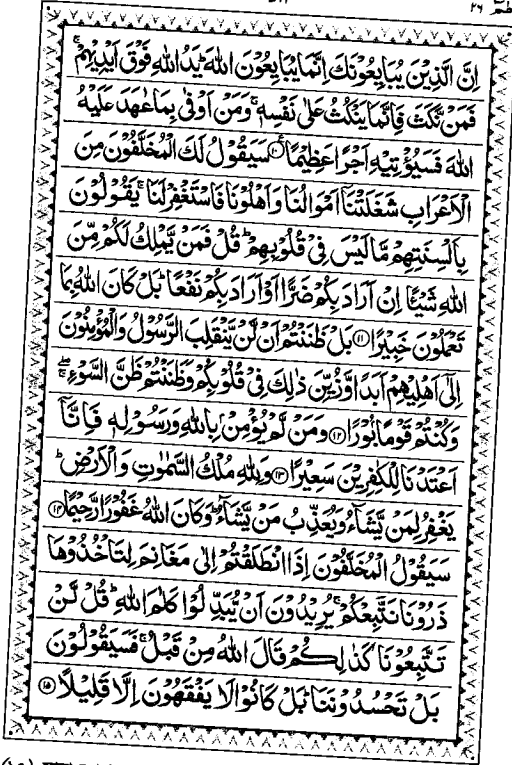 اِنَّ الَّذِيْنَ يُبَايِعُوْنَكَ اِنَّمَا يُبَايِعُوْنَ اللّٰهَ ؕ يَدُ اللّٰهِ فَوْقَ اَيْدِيْهِمْ ۚ
فَمَنْ نَّكَثَ فَاِنَّمَا يَنْكُثُ عَلٰى نَفْسِهٖ ۚ وَمَنْ اَوْفٰى بِمَا عٰهَدَ عَلَيْهُ
اللّٰهَ فَسَيُؤْتِيْهِ اَجْرًا عَظِيْمًا ۧ ۱۰ سَيَقُوْلُ لَكَ الْمُخَلَّفُوْنَ مِنَ
الْاَعْرَابِ شَغَلَتْنَاۤ اَمْوَالُنَا وَاَهْلُوْنَا فَاسْتَغْفِرْ لَنَا ۚ يَقُوْلُوْنَ
بِاَلْسِنَتِهِمْ مَّا لَيْسَ فِيْ قُلُوْبِهِمْ ؕ قُلْ فَمَنْ يَّمْلِكُ لَكُمْ مِّنَ
اللّٰهِ شَيْـًٔا اِنْ اَرَادَ بِكُمْ ضَرًّا اَوْ اَرَادَ بِكُمْ نَفْعًا ؕ بَلْ كَانَ اللّٰهُ بِمَا
تَعْمَلُوْنَ خَبِيْرًا ۱۱ بَلْ ظَنَنْتُمْ اَنْ لَّنْ يَّنْقَلِبَ الرَّسُوْلُ وَالْمُؤْمِنُوْنَ
اِلٰۤى اَهْلِيْهِمْ اَبَدًا وَّزُيِّنَ ذٰلِكَ فِيْ قُلُوْبِكُمْ وَظَنَنْتُمْ ظَنَّ السَّوْءِ ۖۚ
وَكُنْتُمْ قَوْمًاۢ بُوْرًا ۱۲ وَمَنْ لَّمْ يُؤْمِنْۢ بِاللّٰهِ وَرَسُوْلِهٖ فَاِنَّاۤ
اَعْتَدْنَا لِلْكٰفِرِيْنَ سَعِيْرًا ۱۳ وَلِلّٰهِ مُلْكُ السَّمٰوٰتِ وَالْاَرْضِ ؕ
يَغْفِرُ لِمَنْ يَّشَآءُ وَيُعَذِّبُ مَنْ يَّشَآءُ ؕ وَكَانَ اللّٰهُ غَفُوْرًا رَّحِيْمًا ۱۴
سَيَقُوْلُ الْمُخَلَّفُوْنَ اِذَا انْطَلَقْتُمْ اِلٰى مَغَانِمَ لِتَاْخُذُوْهَا
ذَرُوْنَا نَتَّبِعْكُمْ ۚ يُرِيْدُوْنَ اَنْ يُّبَدِّلُوْا كَلٰمَ اللّٰهِ ؕ قُلْ لَّنْ
تَتَّبِعُوْنَا كَذٰلِكُمْ قَالَ اللّٰهُ مِنْ قَبْلُ ۚ فَسَيَقُوْلُوْنَ
بَلْ تَحْسُدُوْنَنَا ؕ بَلْ كَانُوْا لَا يَفْقَهُوْنَ اِلَّا قَلِيْلًا ۱۵